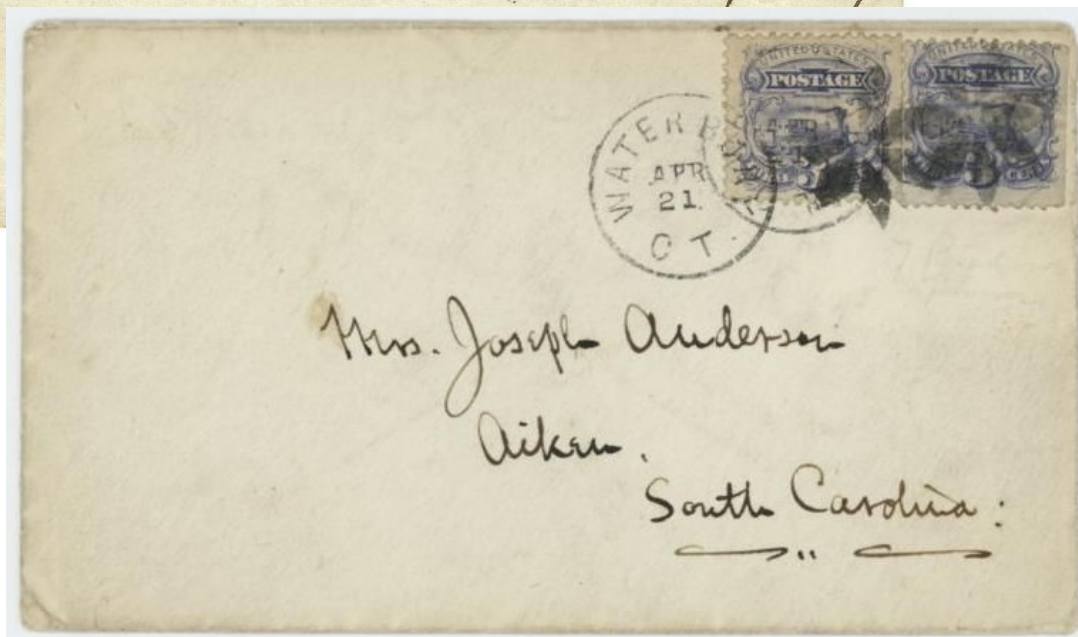 UNITED STATES
POSTAGE
UNITED STATES
POSTAGE
3
WATERBURY
APR
21.
CT.
Mrs. Joseph Anderson
Aiken.
South Carolina: